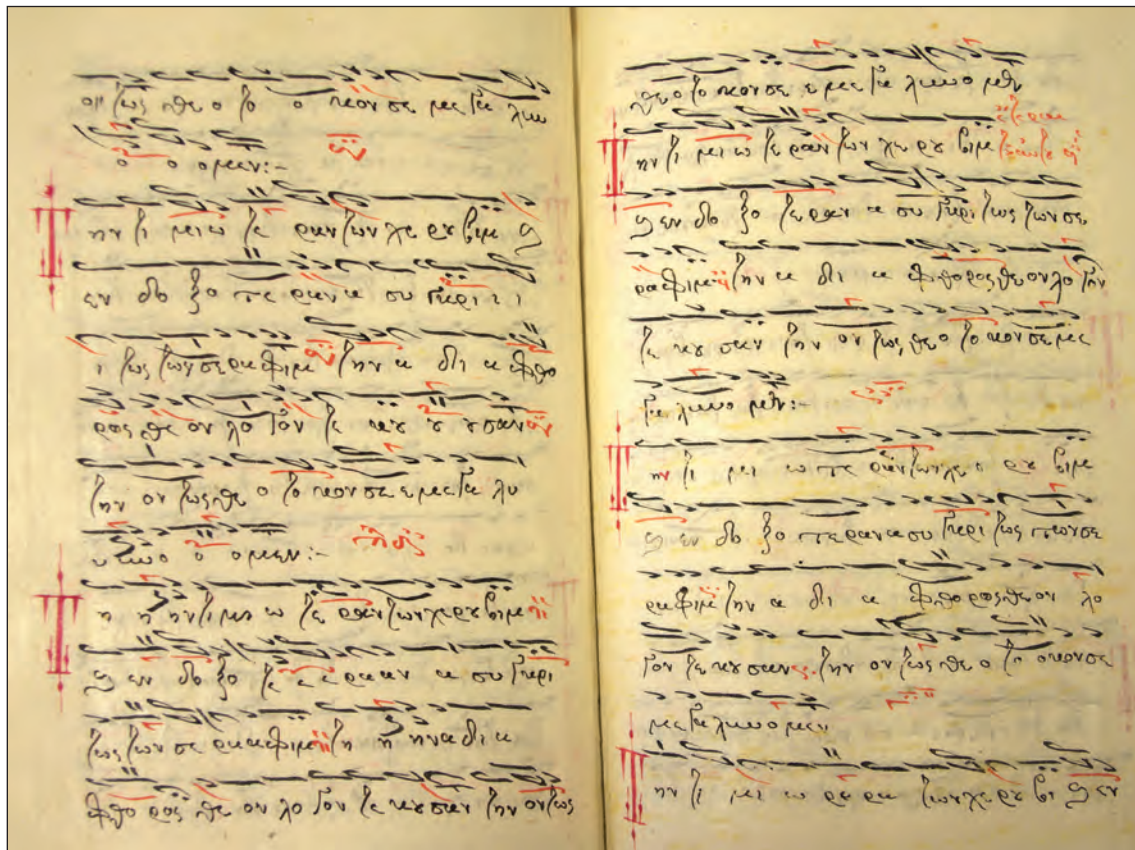 ον τως θε ο το ο κον σε με γα λυυ
ο ο ομεν:-
Την τι μι ω τε ραν των χε ρου βιμ ϗ
εν δο ξο τε ραν α συ γκρι ι ι
ι τως των σε ρα φιμ την α δι α φθο
ρας θε ον λο γον τε κου ου ου σαν
την ον τως θε ο το κον σε ε με γα λυ
υ νω ο ο ομεν:-
Τη η ην τι μι ω τε ραν των χε ρου βιμ
ϗ εν δο ξο τε ε ε ρααν α συ γκρι
τως των σε ρα α φιμ τη η ην α δι α
φθο ρας θε ον λο γον τε κου σαν την οντως
θε ο το κον σε ε με γα λυνο μεν
Την τι μι ω τε ραν των χε ρου βιμ
ϗ εν δο ξο τε ραν α συ γκρι τως των σε
ρα φιμ την α δι α φθο ρας θε ον λο γον
τε κου σαν την ον τως θε ο το κον σε με
γα λυνο μεν:-
Την τι μι ω τε ραν των χε ε ρου βιμ
ϗ εν δο ξο τε ραν α συ γκρι τως των σε
ρα φιμ την α δι α φθο ρας θε ον λο
γον τε κου σαν την ον τως θε ο το ο κον σε
με γα λυνο μεν
Την τι μι ω ρα ρα των χε ρου βι ϗ εν